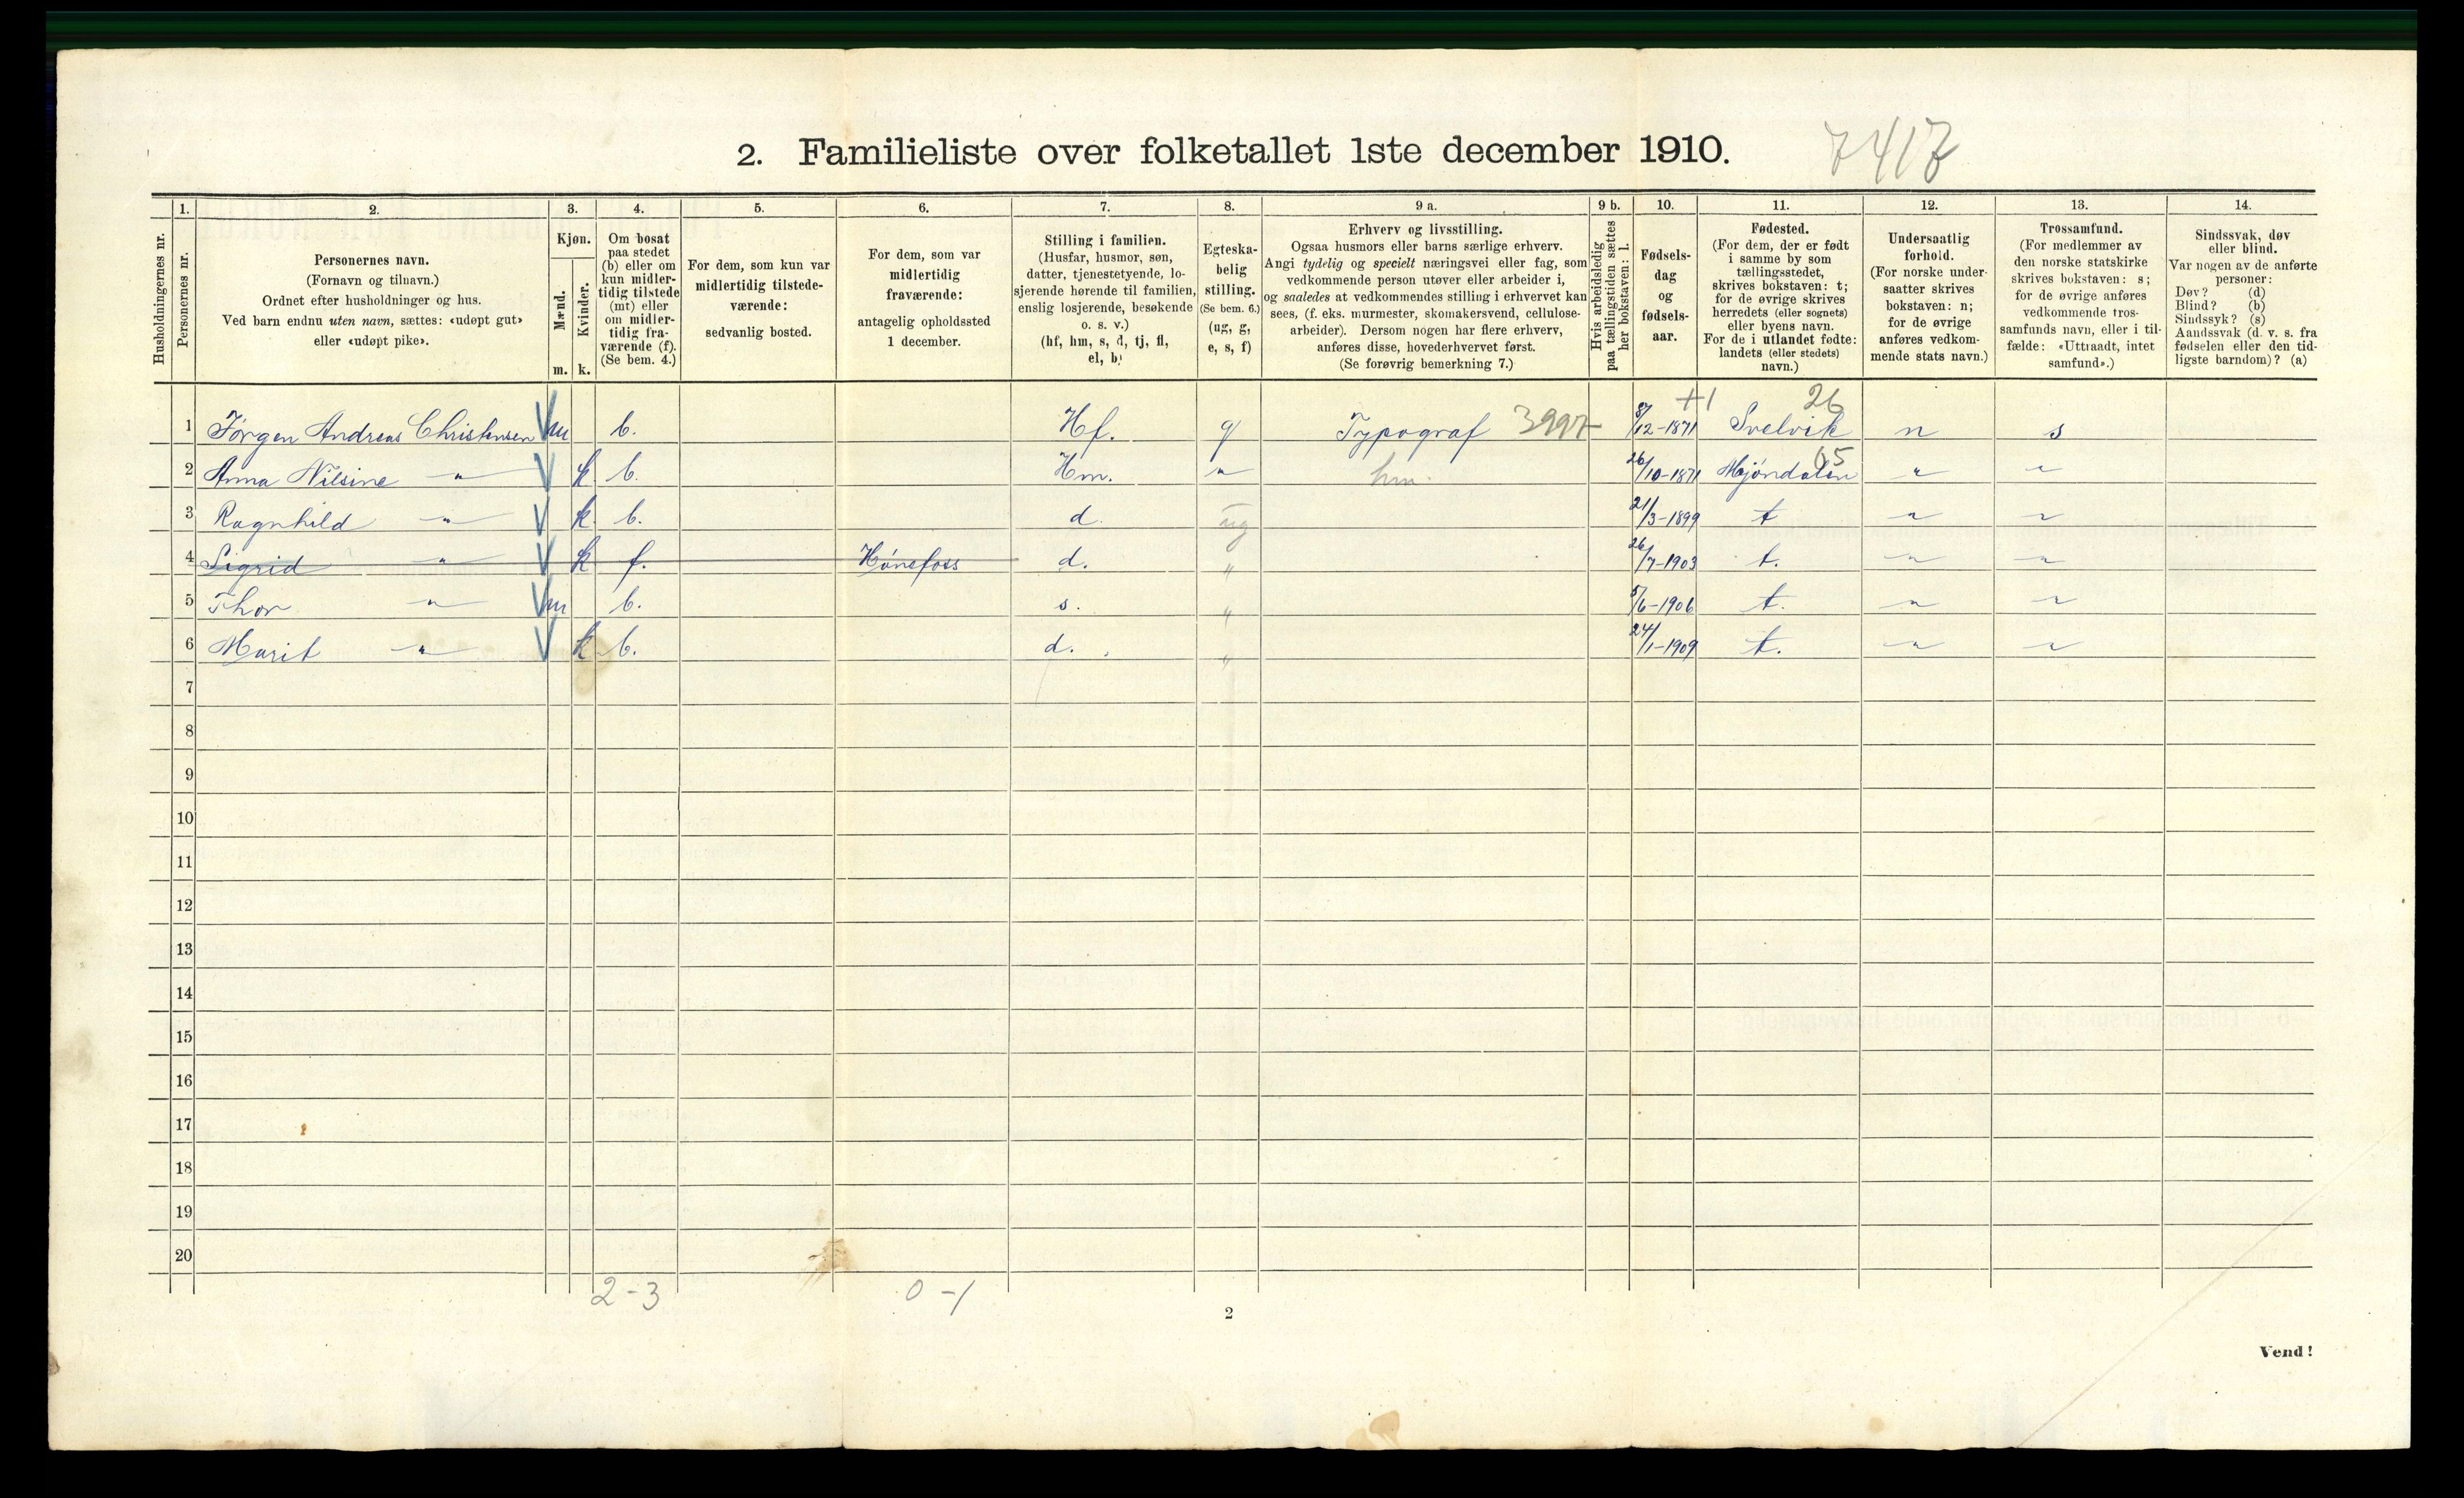 2. Familieliste over folketallet 1ste december 1910.
7417
1. 2. 3. 4. 5. 6. 7. 8. 9 a. 9 b. 10. 11. 12. 13. 14.
Husholdningernes nr.
Personernes nr.
Personernes navn.
(Fornavn og tilnavn.)
Ordnet efter husholdninger og hus.
Ved barn endnu uten navn, sættes: «udøpt gut»
eller «udøpt pike».
Kjøn.
Mænd.
Kvinder.
m. k.
Om bosat
paa stedet
(b) eller om
kun midler-
tidig tilstede
(mt) eller
om midler-
tidig fra-
værende (f).
(Se bem. 4.)
For dem, som kun var
midlertidig tilstede-
værende:
sedvanlig bosted.
For dem, som var
midlertidig
fraværende:
antagelig opholdssted
1 december.
Stilling i familien.
(Husfar, husmor, søn,
datter, tjenestetyende, lo-
sjerende hørende til familien,
enslig losjerende, besøkende
o. s. v.)
(hf, hm, s, d, tj, fl,
el, b)
Egteska-
belig
stilling.
(Se bem. 6.)
(ug, g,
e, s, f)
Erhverv og livsstilling.
Ogsaa husmors eller barns særlige erhverv.
Angi tydelig og specielt næringsvei eller fag, som
vedkommende person utøver eller arbeider i,
og saaledes at vedkommendes stilling i erhvervet kan
sees, (f. eks. murmester, skomakersvend, cellulose-
arbeider). Dersom nogen har flere erhverv,
anføres disse, hovederhvervet først.
(Se forøvrig bemerkning 7.)
Hvis arbeidsledig
paa tællingstiden sættes
her bokstaven: l.
Fødsels-
dag
og
fødsels-
aar.
Fødested.
(For dem, der er født
i samme by som
tællingsstedet,
skrives bokstaven: t;
for de øvrige skrives
herredets (eller sognets)
eller byens navn.
For de i utlandet fødte:
landets (eller stedets)
navn.)
Undersaatlig
forhold.
(For norske under-
saatter skrives
bokstaven: n;
for de øvrige
anføres vedkom-
mende stats navn.)
Trossamfund.
(For medlemmer av
den norske statskirke
skrives bokstaven: s;
for de øvrige anføres
vedkommende tros-
samfunds navn, eller i til-
fælde: «Uttraadt, intet
samfund».)
Sindssvak, døv
eller blind.
Var nogen av de anførte
personer:
Døv? (d)
Blind? (b)
Sindssyk? (s)
Aandssvak (d. v. s. fra
fødselen eller den tid-
ligste barndom)? (a)
+1 26
1 Jørgen Andreas Christensen V m b. Hf. g Typograf 3997 8/12-1871 Svelvik n s
2 Anna Nilsine " V k b. Hm. " hm. 26/10-1871 Mjöndalen 65 " "
3 Ragnhild " V k. b. d. ug 21/3-1899 t " "
4 Sigrid " V k f. Hönefoss d. " 26/7-1903 t. " "
5 Thor " V m b. s. " 5/6-1906 t. " "
6 Marit " V k b. d. " 24/1-1909 t. " "
7
8
9
10
11
12
13
14
15
16
17
18
19
20
2-3 0-1
2
Vend!